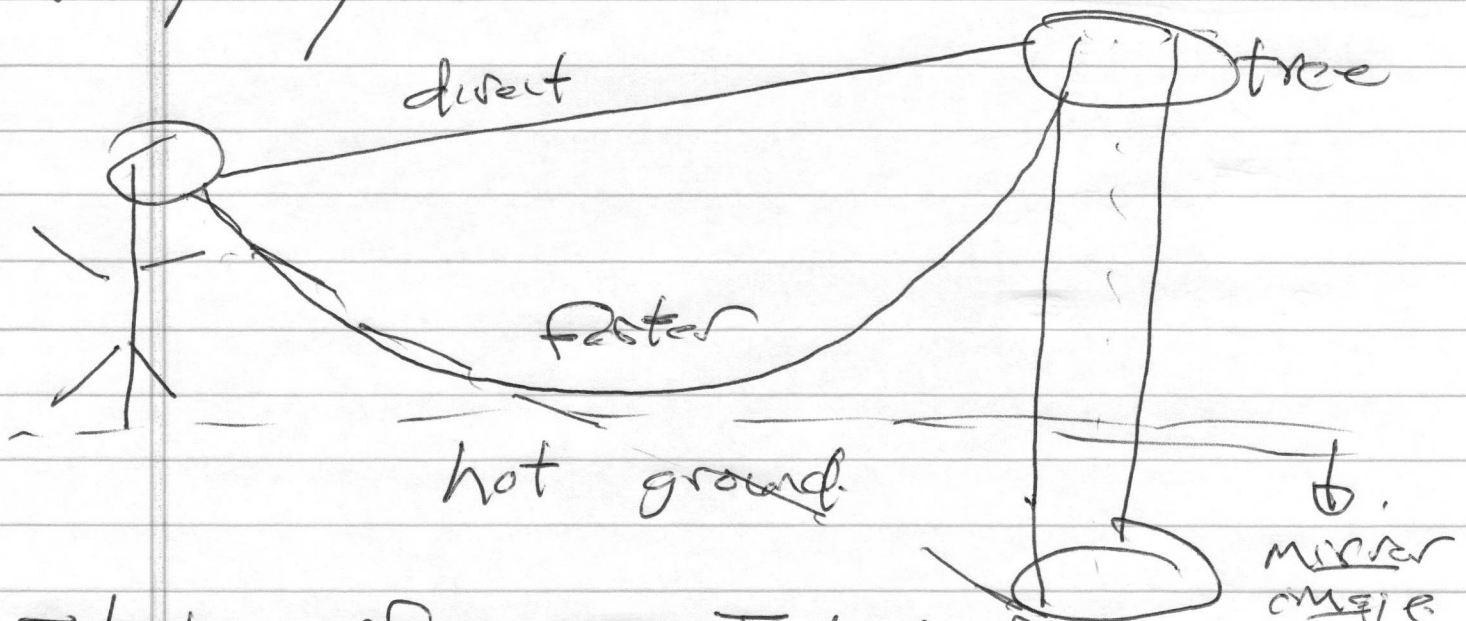 direct
tree
faster
hot ground
mirror
image